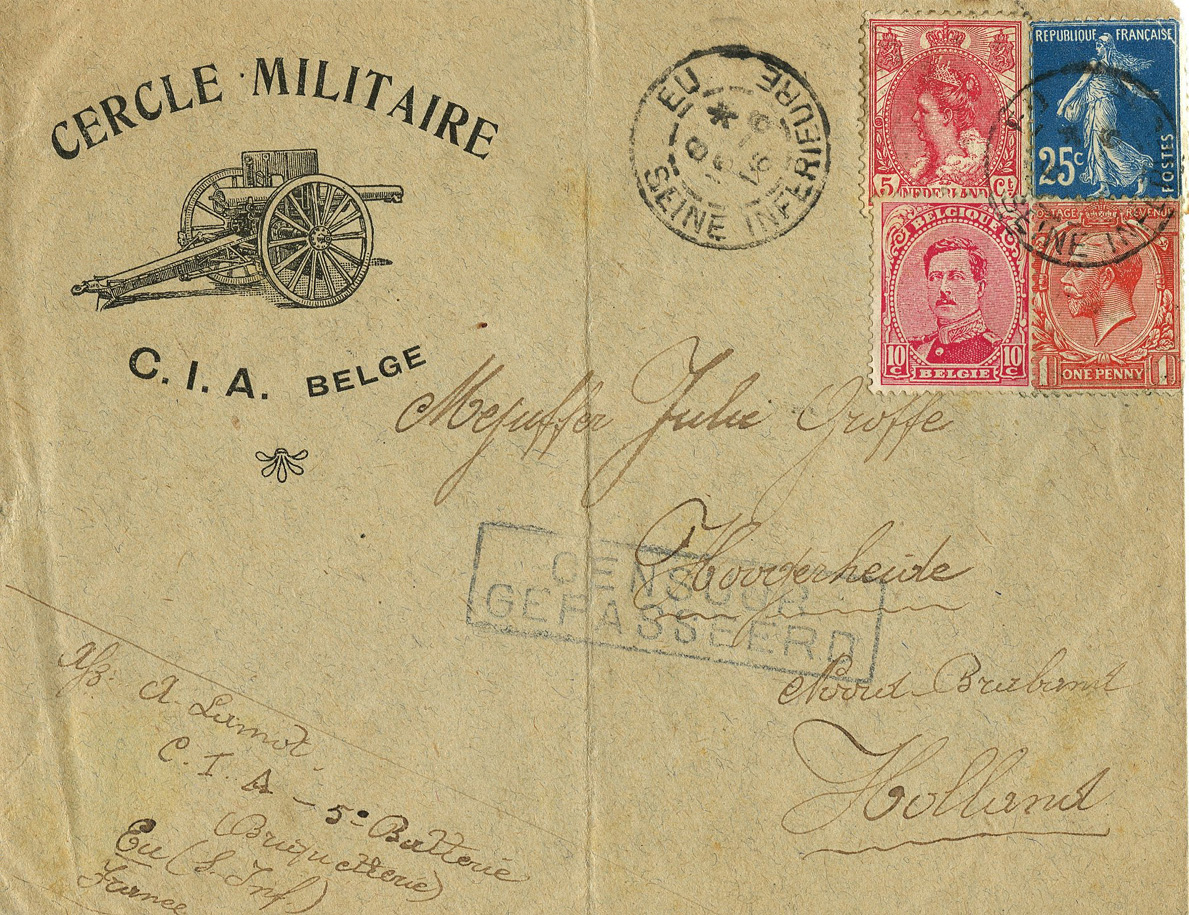 CERCLE MILITAIRE
C.I.A. BELGE
EU
SEINE INFERIEURE
5 NEDERLAND Ct
REPUBLIQUE FRANÇAISE
25c POSTES
BELGIQUE
10 c BELGIE 10 c
POSTAGE REVENUE
1 ONE PENNY 1
SEINE INF
Mejuffer Julie Groffe
Hoogerheide
CENSUUR
GEPASSEERD
Noord-Brabant
Holland
Afz: A. Lamot.
C. I. A - 5e Batterie
(Briquetterie)
Eu (S. Inf)
France